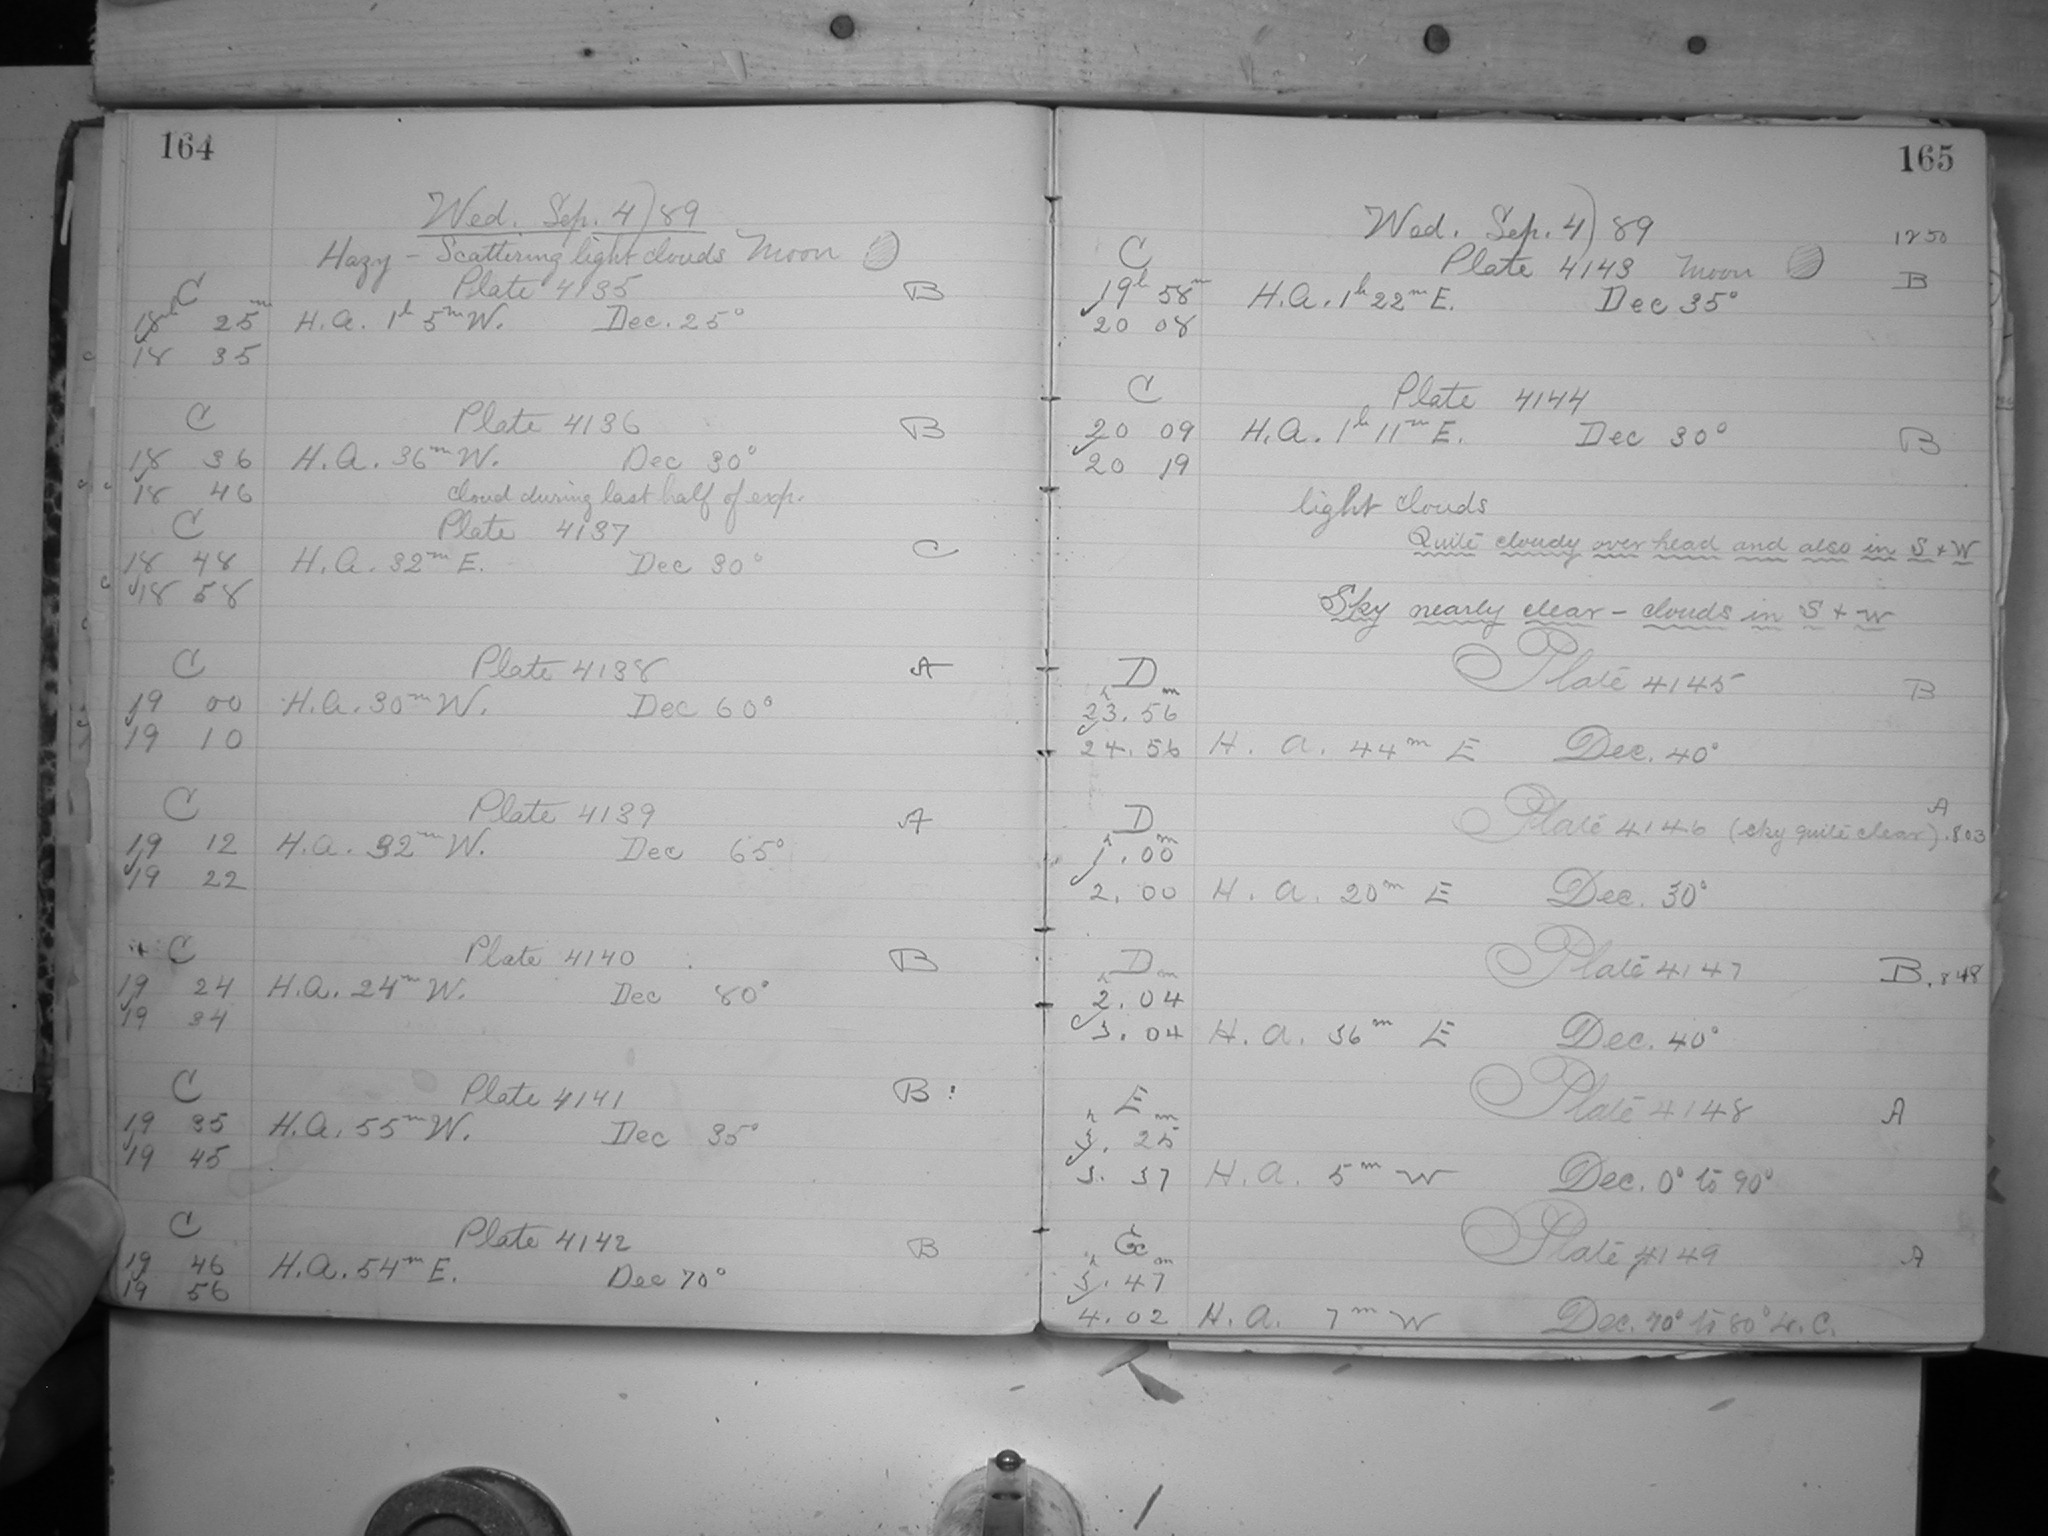 164
Wed. Sep. 4) 89
Hazy - Scattering light clouds Moon
C Plate 4135 B
18h 25m H.A. 1h 5m W. Dec. 25°
18 35
C Plate 4136 B
18 36 H.A. 36m W. Dec 30°
18 46 cloud during last half of exp.
C Plate 4137 C
18 48 H.A. 32m E. Dec 30°
18 58
C Plate 4138 A
19 00 H.A. 30m W. Dec 60°
19 10
C Plate 4139 A
19 12 H.A. 32m W. Dec 65°
19 22
C Plate 4140 B
19 24 H.A. 24m W. Dec 80°
19 34
C Plate 4141 B:
19 35 H.A. 55m W. Dec 35°
19 45
C Plate 4142 B
19 46 H.A. 54m E. Dec 70°
19 56
165
Wed. Sep. 4) 89 1250
C Plate 4143 Moon B
19h 58m H.A. 1h 22m E. Dec 35°
20 08
C Plate 4144
20 09 H.A. 1h 11m E. Dec 30° B
20 19
light clouds
Quite cloudy over head and also in S + W
Sky nearly clear - clouds in S + W
D Plate 4145 B
23h.56m
24.56 H. A. 44m E Dec. 40°
D Plate 4146 (sky quite clear) A .803
1h.00m
2.00 H. A. 20m E Dec. 30°
D Plate 4147 B .848
2h.04m
3.04 H. A. 36m E Dec. 40°
E Plate 4148 A
3h.25m
3.37 H. A. 5m W Dec. 0° to 90°
Plate 4149 A
3h.47m
4.02 H. A. 7m W Dec. 70° to 80° L. C.